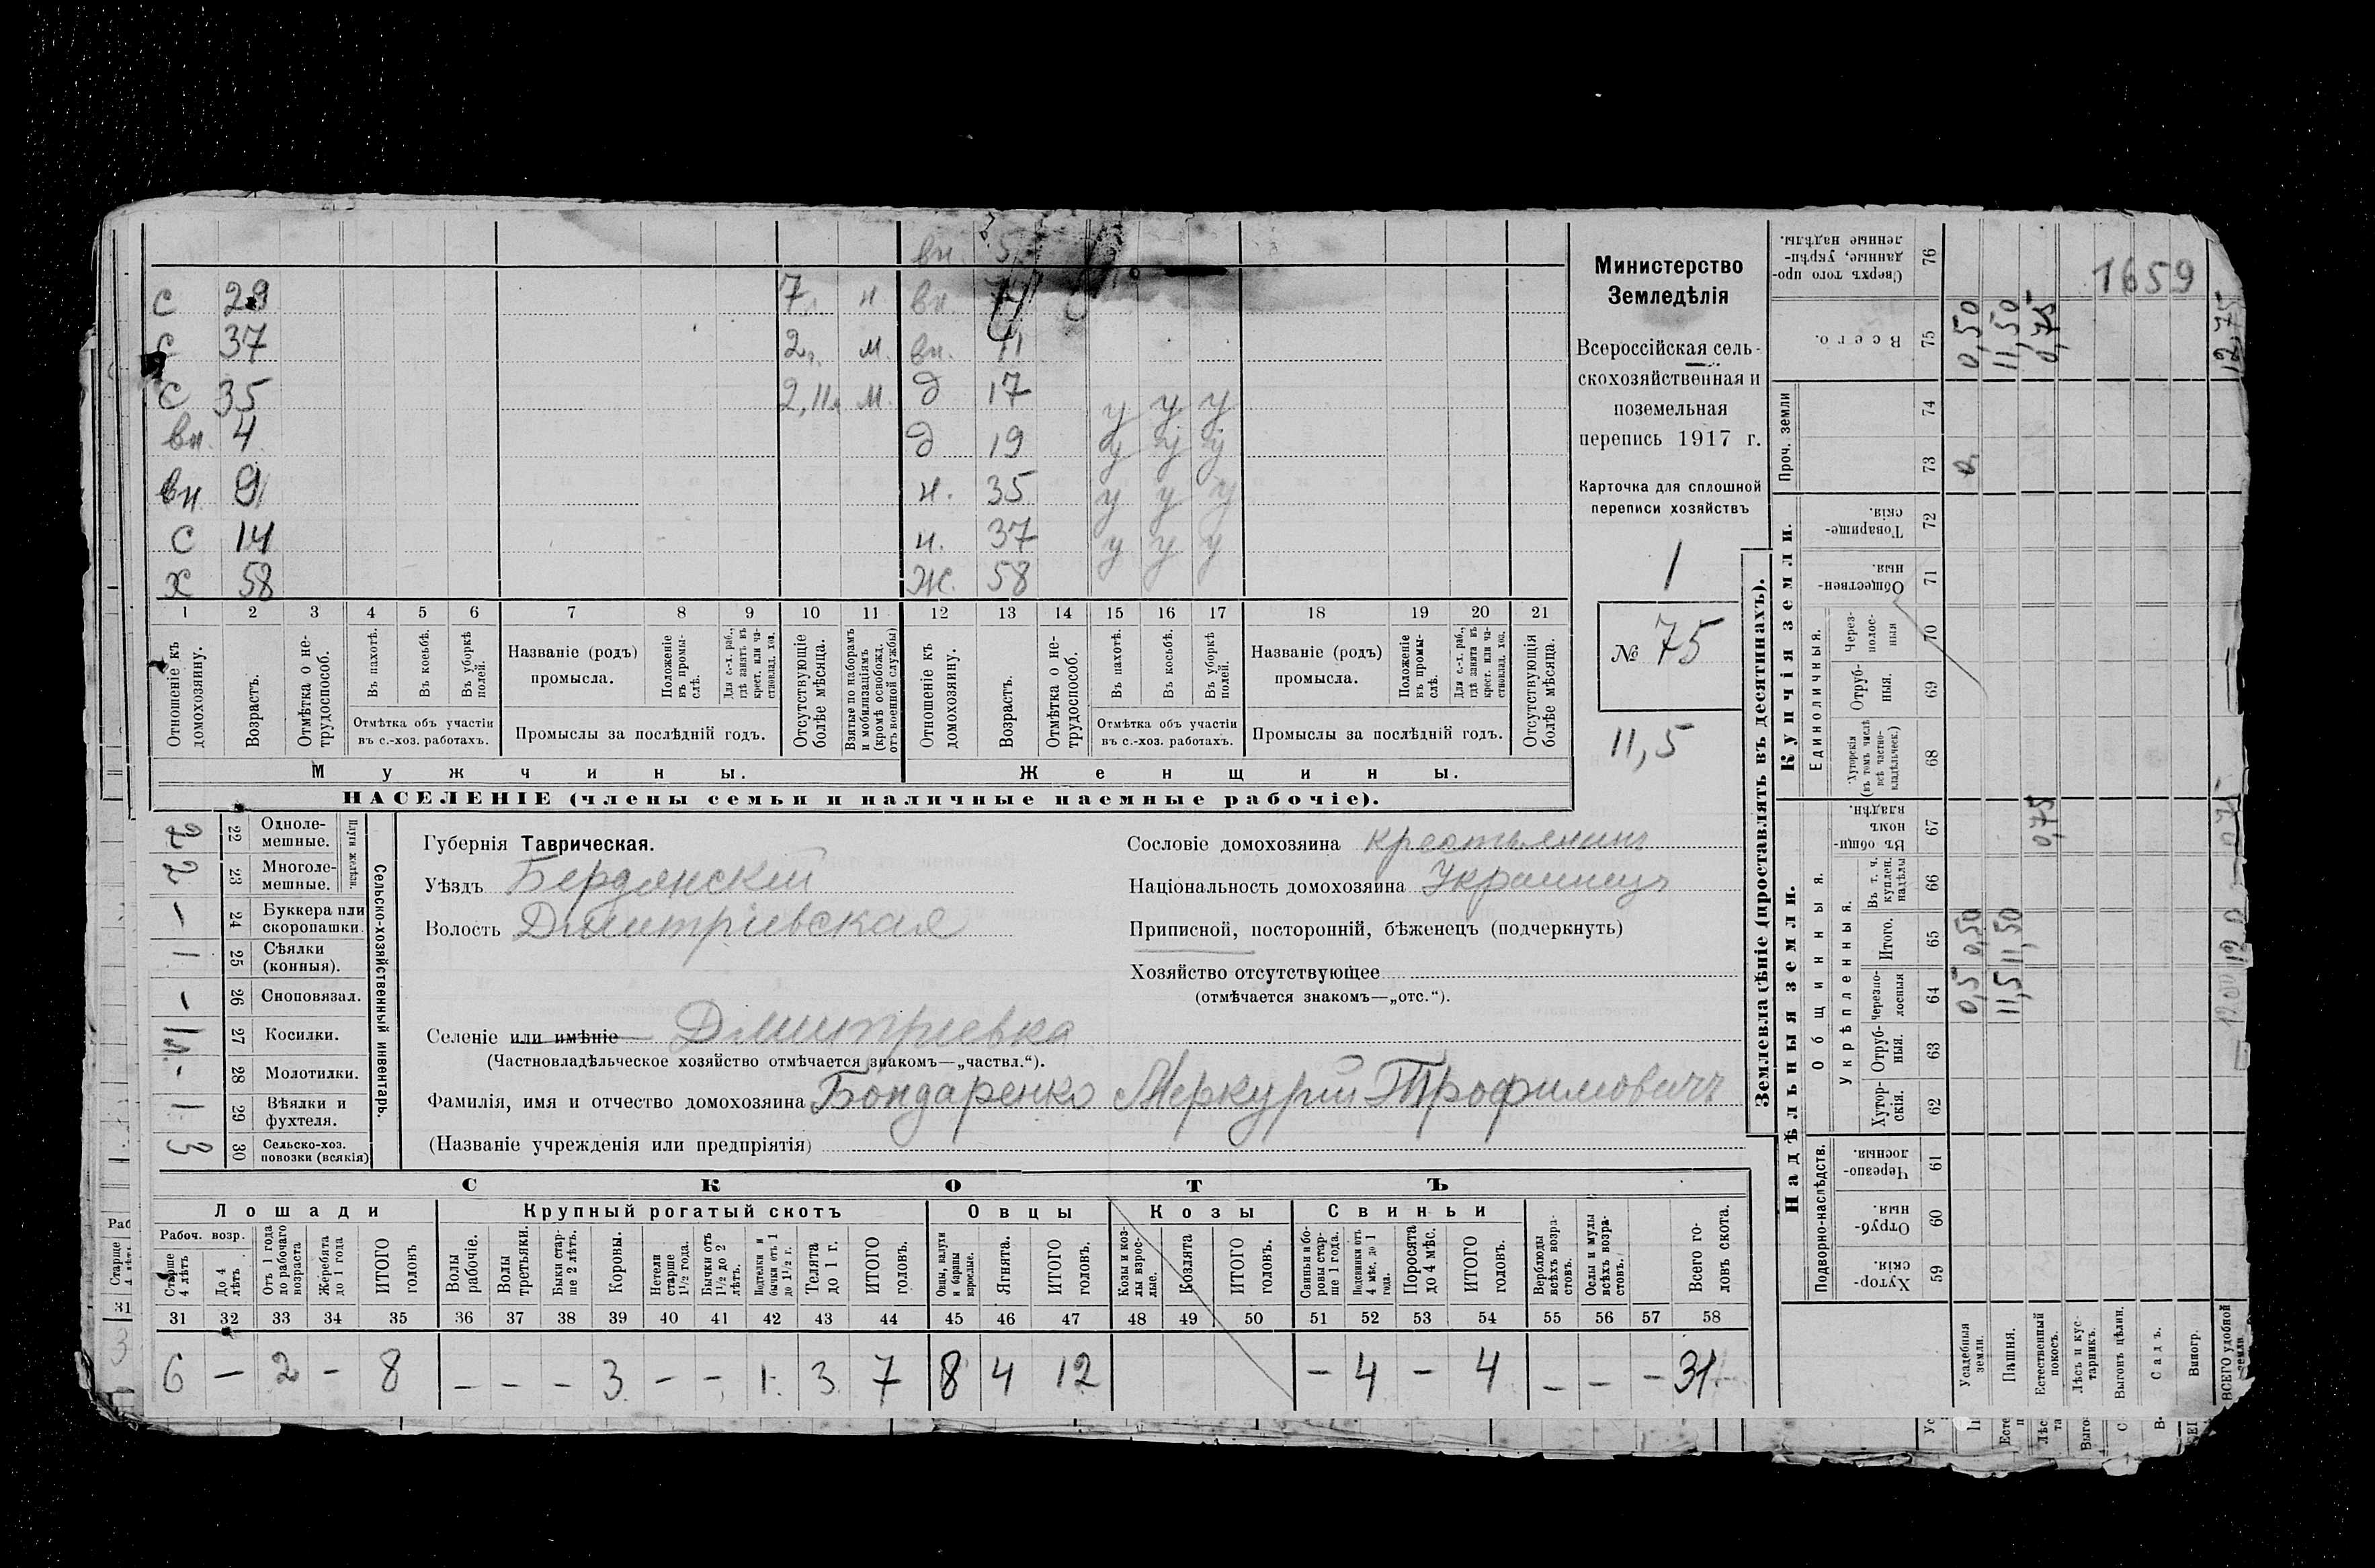 вн. 5
С 29 7 н вн.
С 37 2 м. вн. 11
С 35 2, м. д 17 у у у
вн. 4 д 19 у у у
вн 9 н. 35 у у у
С 14 н. 37 у у у
х 58 ж. 58
1 2 3 4 5 6 7 8 9 10 11 12 13 14 15 16 17 18 19 20 21
Отношеніе къ домохозяину.
Возрастъ.
Отмѣтка о нетрудоспособ.
Въ пахотѣ.
Въ косьбѣ.
Въ уборкѣ полей.
Отмѣтка объ участіи въ с.-хоз. работахъ.
Названіе (родъ) промысла.
Положеніе въ промыслѣ.
Для с.-х. раб., гдѣ занятъ въ крест. или частновлад. хоз.
Промыслы за послѣдній годъ.
Отсутствующіе болѣе мѣсяца.
Взятые по наборамъ и мобилизаціямъ (кромѣ освобожд. отъ военной службы)
Отношеніе къ домохозяину.
Возрастъ.
Отмѣтка о нетрудоспособ.
Въ пахотѣ.
Въ косьбѣ.
Въ уборкѣ полей.
Отмѣтка объ участіи въ с.-хоз. работахъ.
Названіе (родъ) промысла.
Положеніе въ промыслѣ.
Для с.-х. раб., гдѣ занята въ крест. или частновлад. хоз.
Промыслы за послѣдній годъ.
Отсутствующія болѣе мѣсяца.
Мужчины. Женщины.
НАСЕЛЕНІЕ (члены семьи и наличные наемные рабочіе).
Министерство
Земледѣлія
Всероссійская сель-
скохозяйственная и
поземельная
перепись 1917 г.
Карточка для сплошной
переписи хозяйствъ
1
№ 75
11,5
Сельско-хозяйственный инвентарь.
2 22 Одноле-мешные.
2 23 Многоле-мешные.
– 24 Буккера или скоропашки.
1 25 Сѣялки (конныя).
– 26 Сноповязал.
27 Косилки.
- 28 Молотилки.
1 29 Вѣялки и фухтеля.
3 30 Сельско-хоз. повозки (всякія)
Губернія Таврическая.
Уѣздъ Бердянскій
Волость Дмитріевская
Сословіе домохозяина крестьянинъ
Національность домохозяина Украинецъ
Приписной, посторонній, бѣженецъ (подчеркнуть)
Хозяйство отсутствующее
(отмѣчается знакомъ—„отс.“).
Селеніе или имѣніе Дмитріевка
(Частновладѣльческое хозяйство отмѣчается знакомъ—„частвл.“).
Фамилія, имя и отчество домохозяина Бондаренко Меркурій Трофимовичъ
(Названіе учрежденія или предпріятія)
СКОТЪ
Лошади Крупный рогатый скотъ Овцы Козы Свиньи
Рабоч. возр.
Старше 4 лѣтъ
До 4 лѣтъ.
Отъ 1 года до рабочаго возраста
Жеребята до 1 года
ИТОГО головъ
Волы рабочіе.
Волы третьяки.
Быки старше 2 лѣтъ.
Коровы.
Нетели старше 1½ года.
Бычки отъ 1½ до 2 лѣтъ.
Подтелки и бычки отъ 1 до 1½ г.
Телята до 1 г.
ИТОГО головъ.
Овцы, валухи и бараны взрослые.
Ягнята.
ИТОГО головъ.
Козы и козлы взрослые.
Козлята
ИТОГО головъ.
Свиньи и боровы старше 1 года.
Подсвинки отъ 4 мѣс. до 1 года.
Поросята до 4 мѣс.
ИТОГО головъ.
Верблюды всѣхъ возрастовъ.
Ослы и мулы всѣхъ возрастовъ.
Всего головъ скота.
31 32 33 34 35 36 37 38 39 40 41 42 43 44 45 46 47 48 49 50 51 52 53 54 55 56 57 58
6 – 2 – 8 – – – 3 – – 1 3 7 8 4 12 – 4 – 4 – – – 31
Землевладѣніе (проставлять въ десятинахъ).
Надѣльныя земли. Купчія земли. Проч. земли
Подворно-наслѣдств.
Общинныя.
Укрѣпленныя.
Единоличныя.
Сверхъ того проданные, укрѣпленные надѣлы. 76
Всего. 75
74
73
Товарищескія. 72
Общественныя. 71
Черезполосныя 70
Отрубныя. 69
Хуторскія (въ томъ числѣ всѣ частновладѣльческ.) 68
Въ общинномъ владѣн. 67
Въ т. ч. куплен. надѣлы 66
Итого. 65
Черезполосныя 64
Отрубныя. 63
Хуторскія. 62
Черезполосныя. 61
Отрубныя. 60
Хуторскія. 59
1659
Усадебныя земли. 0,5 0,50 0,50
Пашня. 11,5 11,50 11,50
Естественный покосъ. 0,75 0,75
Лѣсъ и кустарникъ.
Выгонъ цѣлин.
Садъ.
Виногр.
ВСЕГО удобной земли 12,75